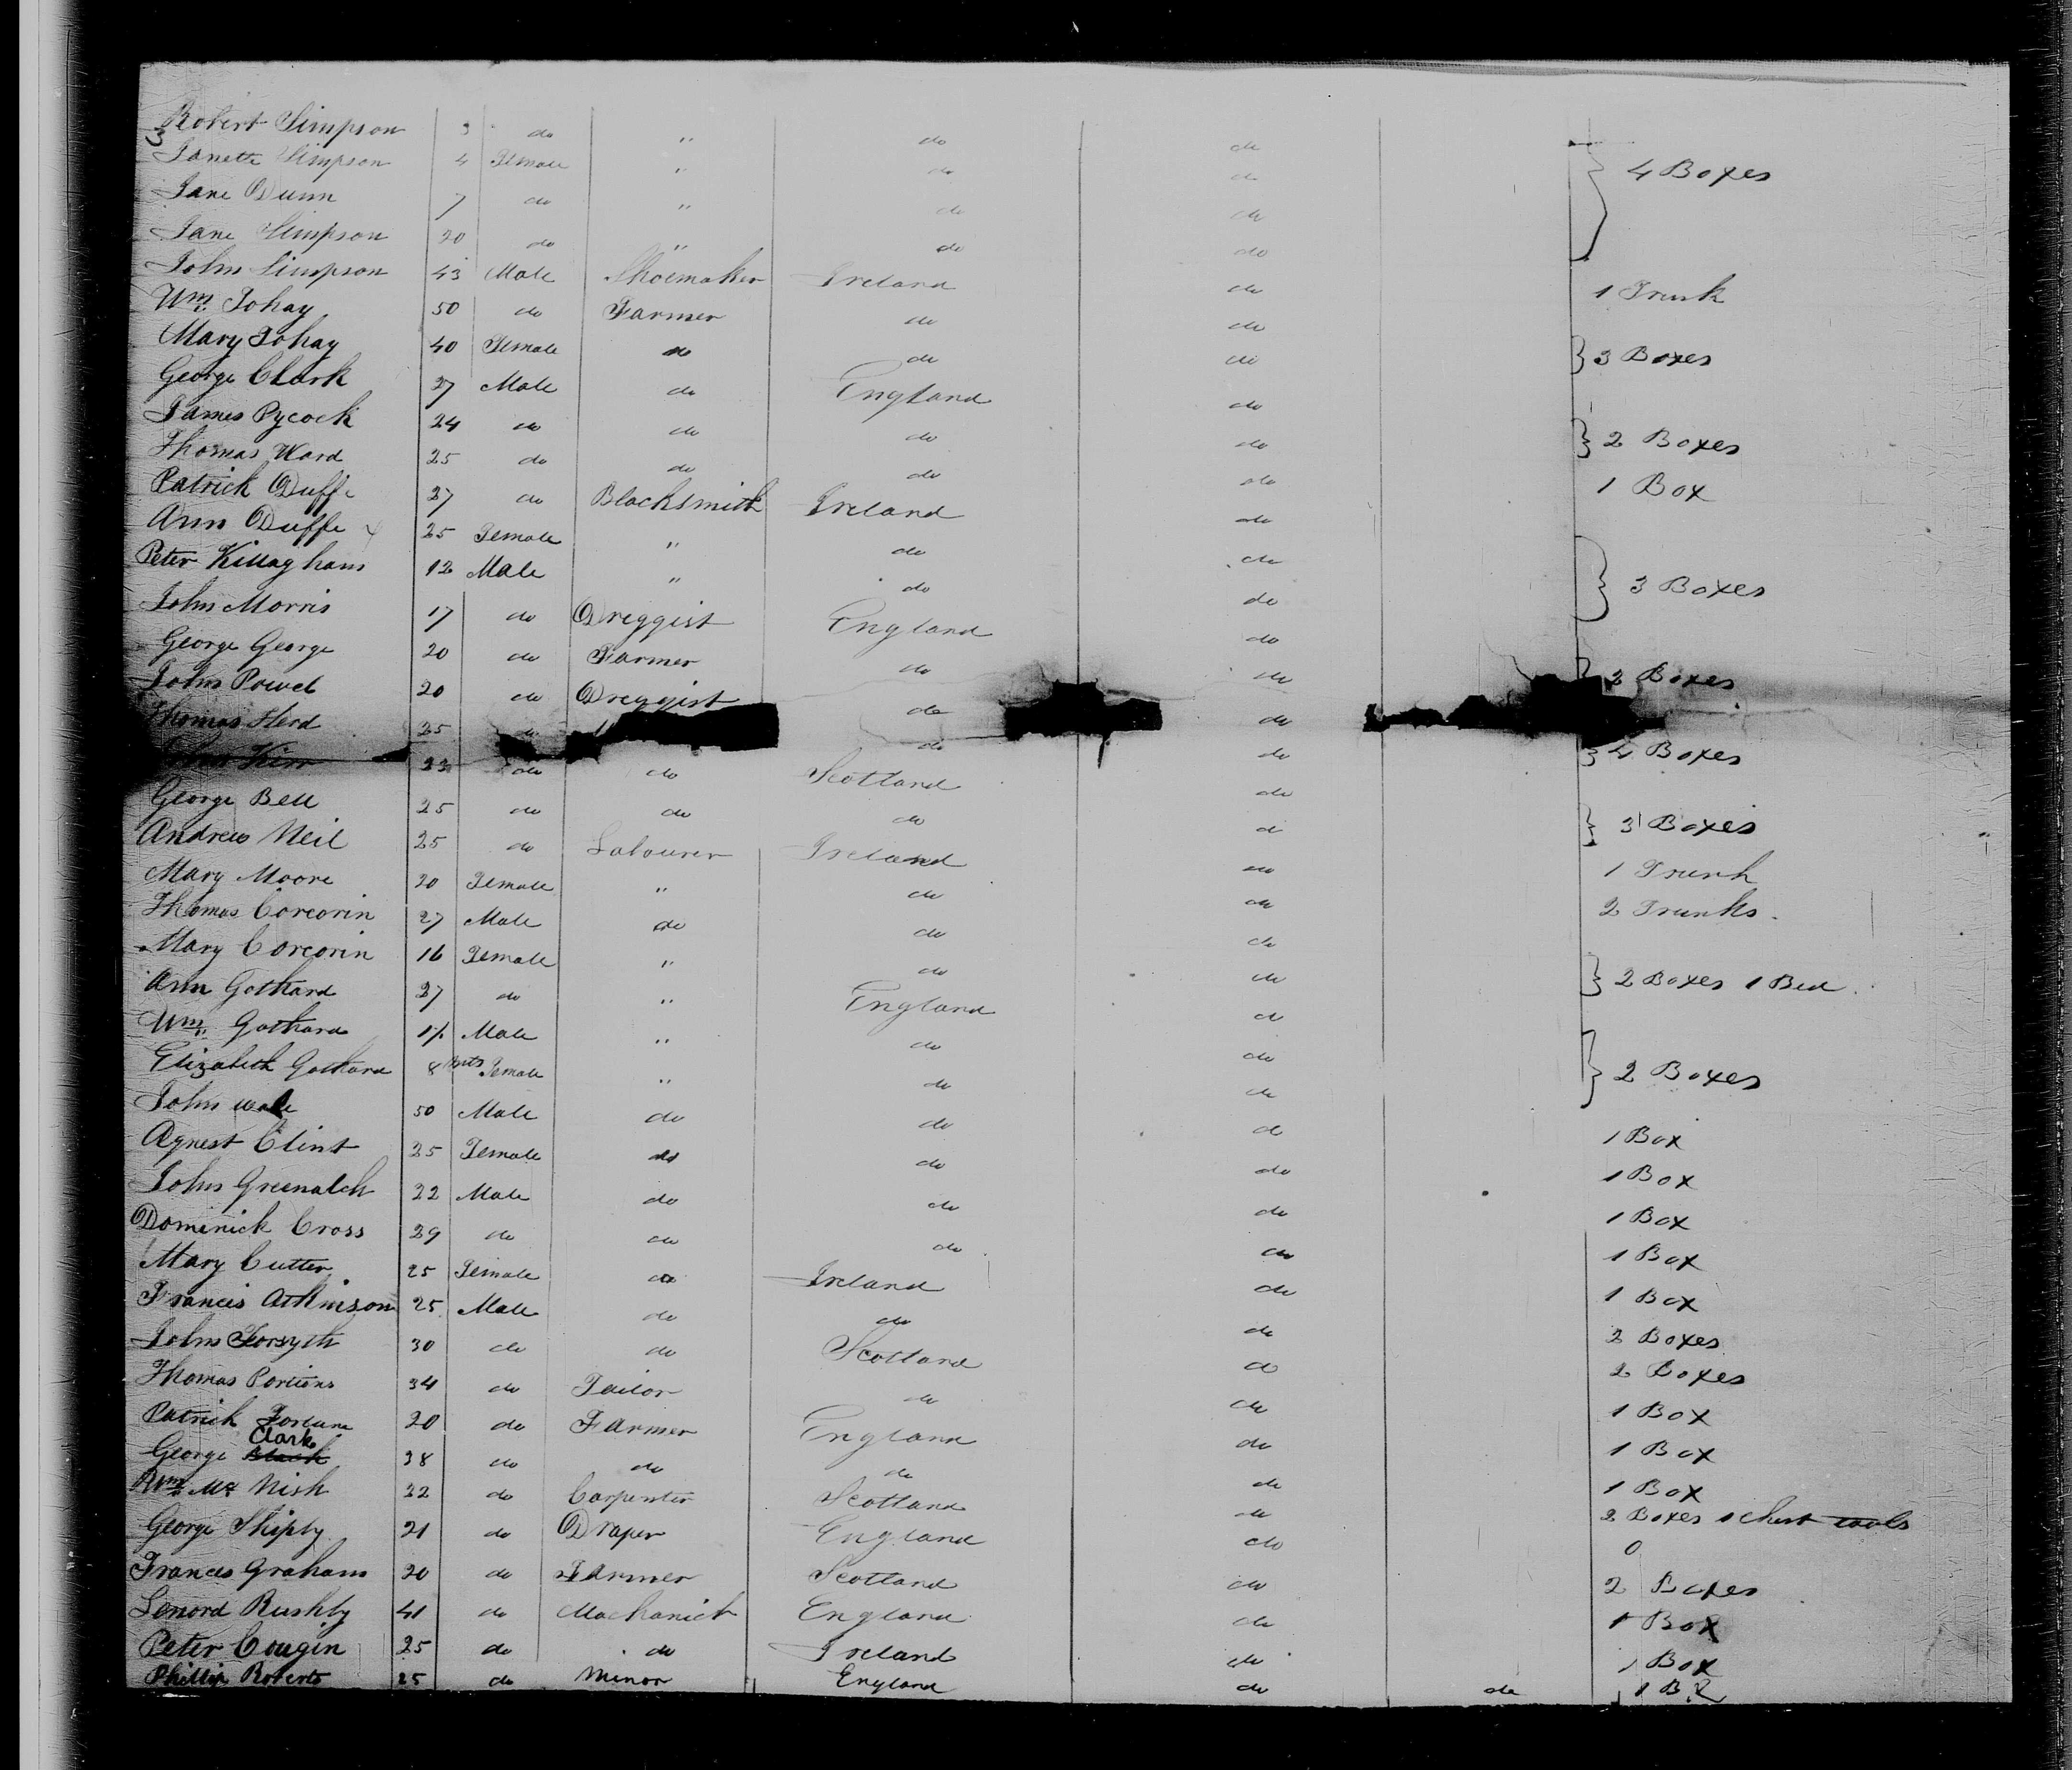 3
Robert Simpson 3 do " do do
Janette Simpson 4 Female " do do 4 Boxes
Jane Dunn 7 do " do do
Jane Simpson 20 do " do do
John Simpson 43 Male Shoemaker Ireland do 1 Trunk
Wm. Tohay 50 do Farmer do do
Mary Tohay 40 Female do do do 3 Boxes
George Clark 27 Male do England do
James Pycock 24 do do do do 2 Boxes
Thomas Ward 25 do do do do
Patrick Duffe 27 do Blacksmith Ireland do 1 Box
Ann Duffe 25 Female " do do
Peter Killaghan 12 Male " do do 3 Boxes
John Morris 17 do Dreggist England do
George George 20 do Farmer do do 2 Boxes
John Powel 20 do Dreggist do do
Thomas Herd 25 do do do 4 Boxes
Kirr 23 do do Scotland do
George Bell 25 do do do do 3 Boxes
Andrew Neil 25 do Labourer Ireland do 1 Trunk
Mary Moore 20 Female " do do 2 Trunks
Thomas Corcorin 27 Male do do do
Mary Corcorin 16 Female " do do 2 Boxes 1 Bed
Ann Gothard 27 do " England do
Wm. Gothard Male " do do
Elizabeth Gothard 8 mts Female " do do 2 Boxes
John 50 Male do do do 1 Box
Agnest Clint 25 Female do do do 1 Box
John Greenalch 22 Male do do do 1 Box
Dominick Cross 29 do do do do 1 Box
Mary Cutter 25 Female do Ireland do 1 Box
Francis Atkinson 25 Male do do do 2 Boxes
John Forsyth 30 do do Scotland do 2 Boxes
Thomas Portions 34 do Tailor do do 1 Box
Patrick 20 do Farmer England do 1 Box
George Clark 38 do do do do 1 Box
Wm. Mc Nish 22 do Carpenter Scotland do 2 Boxes 1 Chest tools
George Shiply 21 do Draper England do 0
Francis Graham 20 do Farmer Scotland do 2 Boxes
Lenord Rushby 41 do Machanick England do 1 Box
Peter Cougin 25 do do Ireland do 1 Box
Phillip Roberts 25 do Minor England do do 1